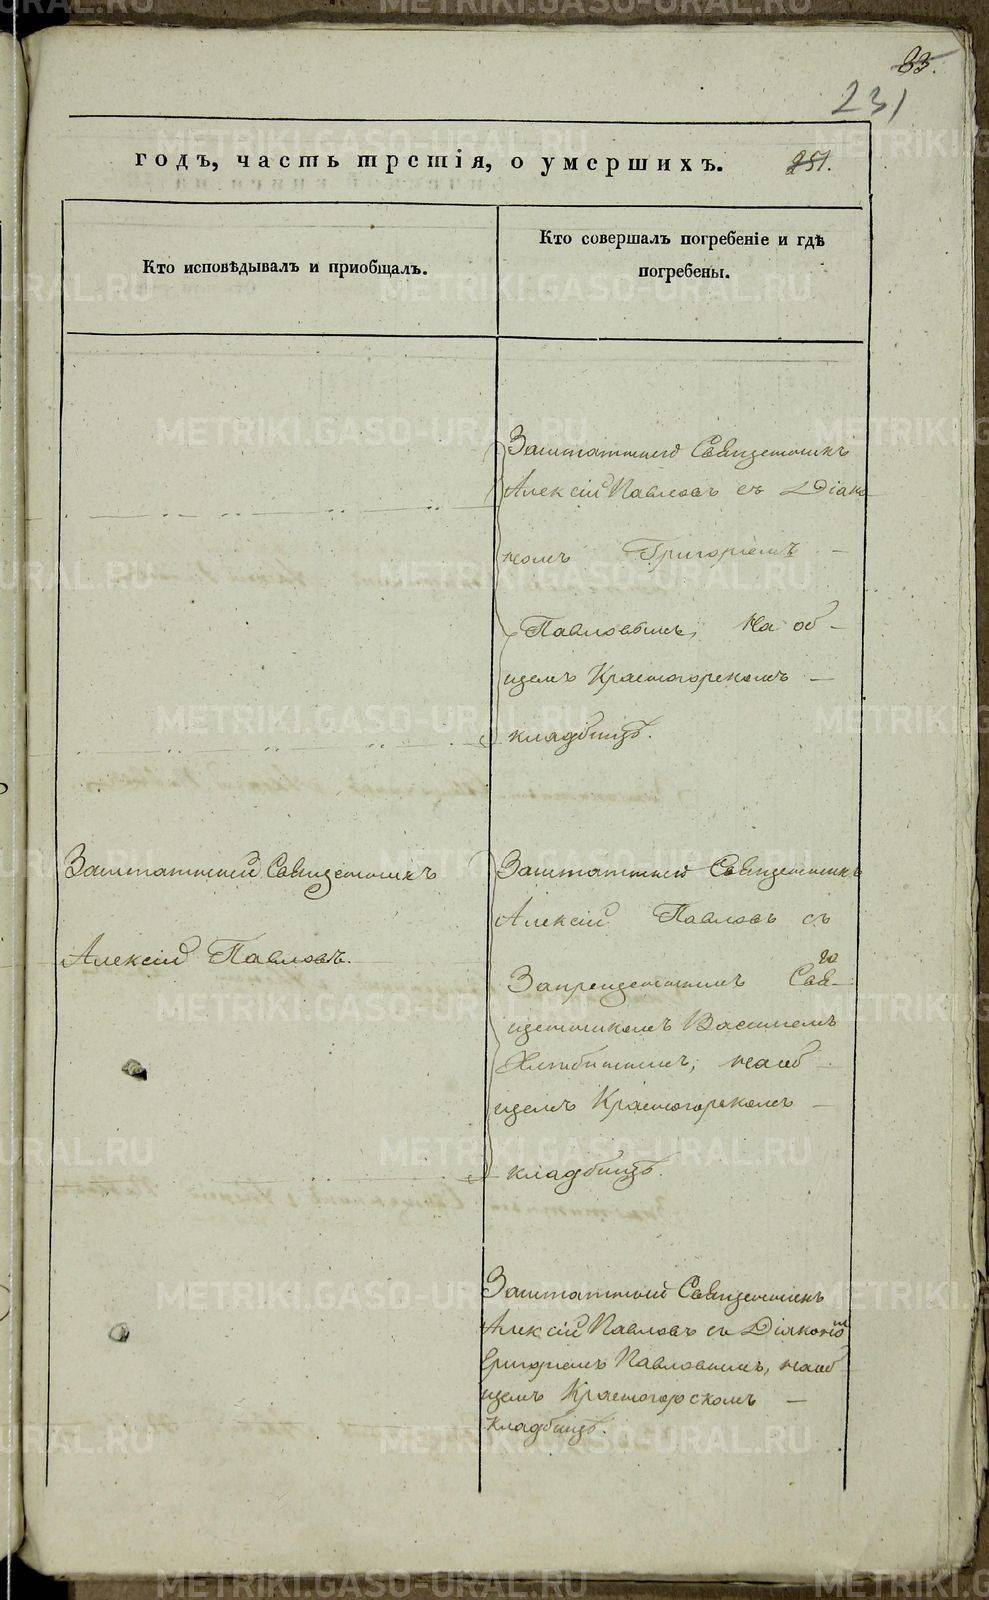 83.
231
годъ, часть третія, о умершихъ.
251.
Кто исповѣдывалъ и приобщалъ.
Кто совершалъ погребеніе и гдѣ
погребены.
Заштатный Священникъ
Алексій Павловъ съ Діако
номъ Григоріемъ –
Павловымъ, на об –
щемъ Красногорскомъ –
кладбищѣ.
Заштатный Священникъ
Алексій Павловъ.
Заштатный Священникъ
Алексій Павловъ съ
Запрещеннымъ Свя–
щенникомъ Василіемъ
на об
щемъ Красногорскомъ –
кладбищѣ.
Заштатный Священникъ
Алексій Павловъ съ Діакономъ
Григоріемъ Павловымъ, на об
щемъ Красногорскомъ –
кладбищѣ.
METRIKI.GASO-URAL.RU